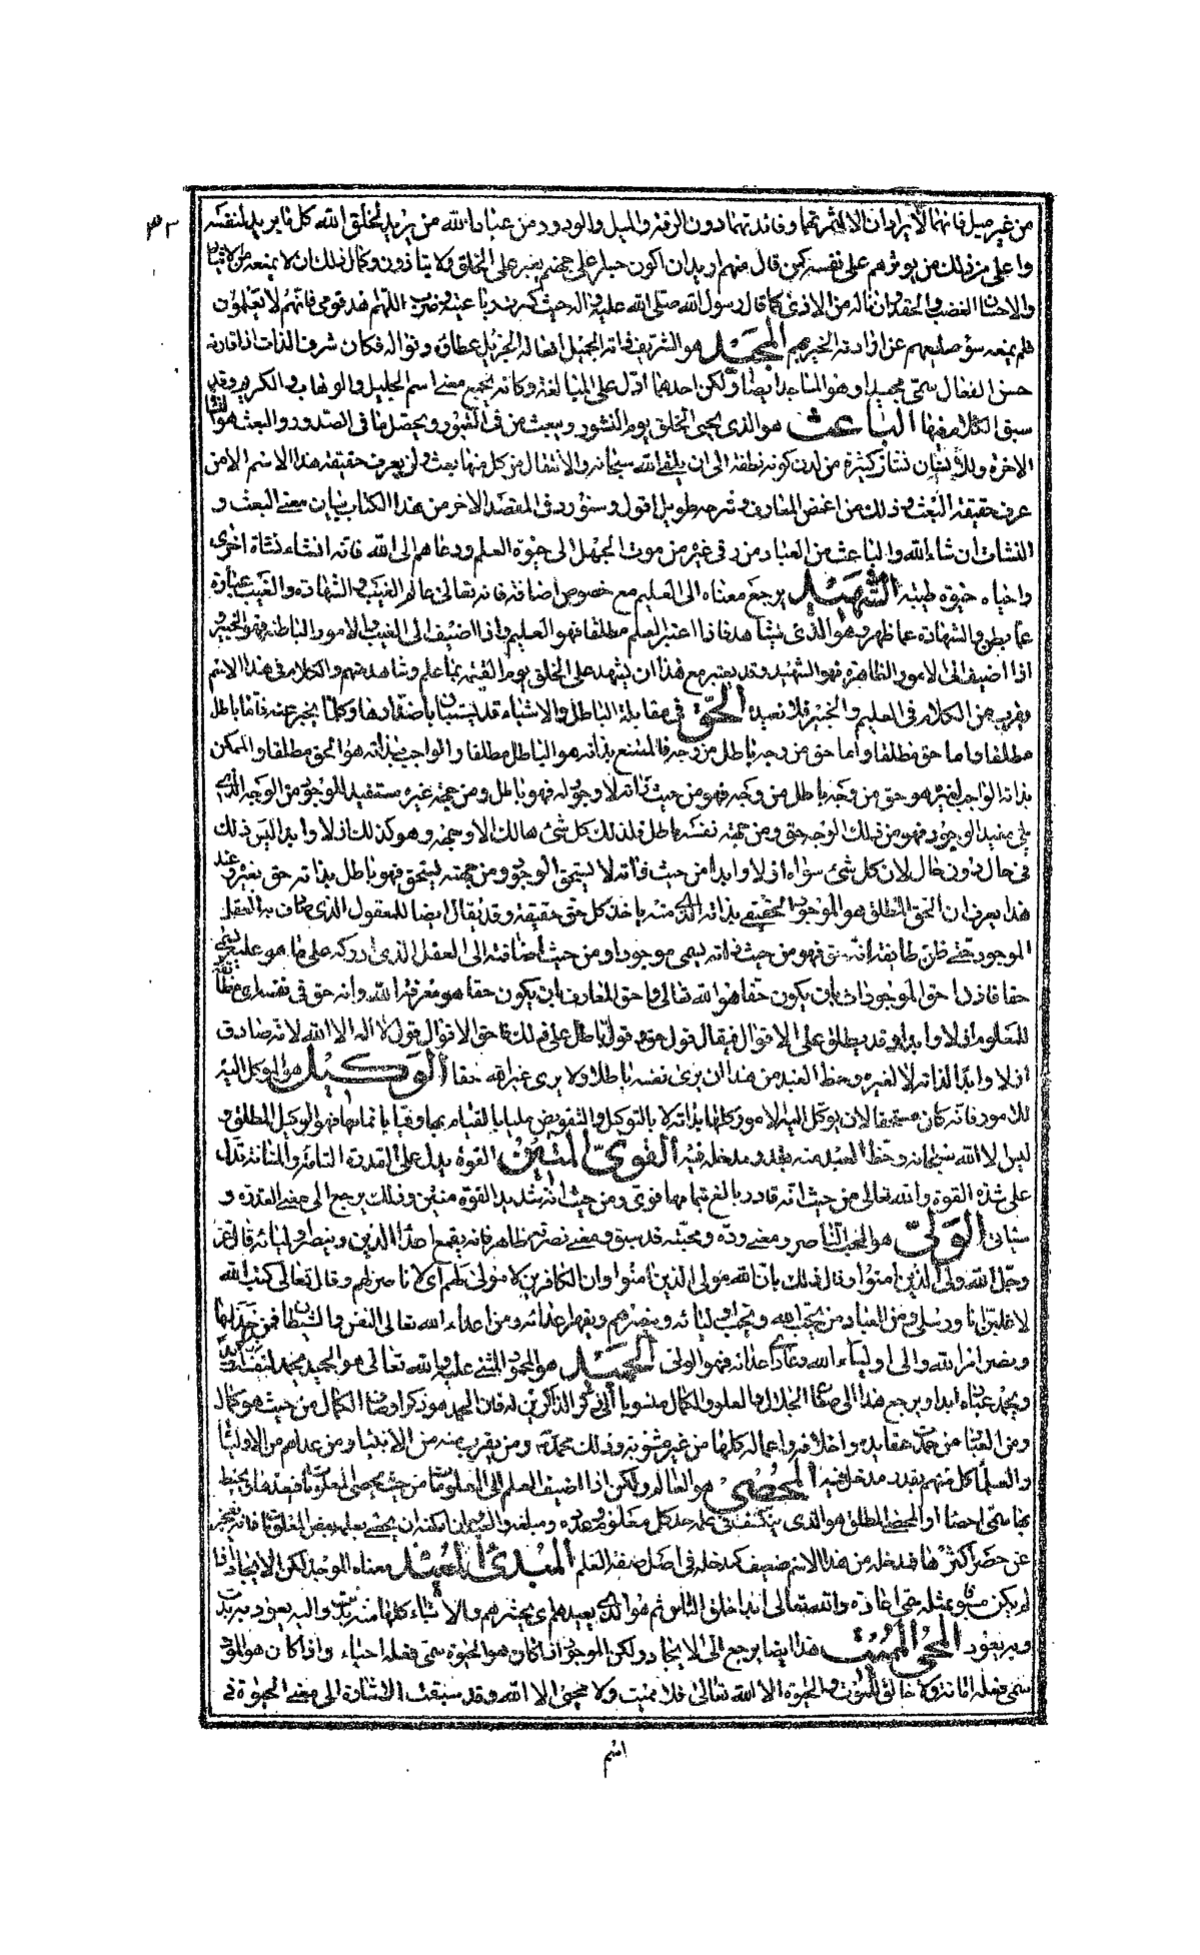 ٣٢
من غير ميل فانهما لا يرادان الا لثمرتهما وفائدتهما دون الرقة والميل والودود من عباد الله من يريد لخلق الله كل ما يريد لنفسه
واعلى من ذلك من يوثرهم على نفسه كمن قال منهم اريد ان اكون جسرا على جهنم يعبر على الخلق ولا يتاذون وكمال ذلك ان لا يمنعه من الايثار
والاحسان الغضب والحقد وان ناله من الاذى كما قال رسول الله صلى الله عليه واله حيث كسرت رباعيته وضرب اللهم اهد قومى فانهم لا يعلمون
فلم يمنعه سوء صنيعهم عن ارادته الخير بهم المجيد هو الشريف ذاته الجميل افعاله الجزيل عطاؤه ونواله فكان شرف الذات اذا قارنه
حسن الفعال سمى مجيدا وهو الماجد ايضا ولكن احدهما ادل على المبالغة وكانه يجمع معنى اسم الجليل والوهاب والكريم وقد
سبق الكلام فيها الباعث هو الذى يحيى الخلق يوم النشور ويبعث من فى القبور ويحصل ما فى الصدور والبعث هو النشاة
الاخرة وللانسان نشات كثيرة من لدن كونه نطفة الى ان يلقى الله سبحانه والانتقال من كل منها بعث ولن يعرف حقيقة هذا الاسم الا من
عرف حقيقة البعث وذلك من اغمض المعارف وشرحه طويل اقول وسنورد فى المقصد الاخر من هذا الكتاب بيان معنى البعث و
النشات ان شاء الله والباعث من العباد من رقى غيره من موت الجهل الى حيوة العلم ودعاهم الى الله فانه انشاء نشاة اخرى
واحياه حيوة طيبة الشهيد يرجع معناه الى العليم مع خصوص اضافة فانه تعالى عالم الغيب والشهادة والغيب عبارة
عما بطن والشهادة عما ظهر وهو الذى يشاهد فاذا اعتبر العلم مطلقا فهو العليم واذا اضيف الى الغيب والامور الباطنة فهو الخبير و
اذا اضيف الى الامور الظاهرة فهو الشهيد وقد يعتبر مع هذا ان يشهد على الخلق يوم القيمة بما علم وشاهد منهم والكلام فى هذا الاسم
يقرب من الكلام فى العليم والخبير فلا نعيده الحق فى مقابلة الباطل والاشياء قد تستبان باضدادها وكلما يخبر عنه فاما باطل
مطلقا واما حق مطلقا واما حق من وجه باطل من وجه فالممتنع بذاته هو الباطل مطلقا والواجب بذاته هو الحق مطلقا والممكن
بذاته الواجب لغيره هو حق من وجه باطل من وجه فهو من حيث ذاته لا وجود له فهو باطل ومن جهة غيره مستفيد للوجود من الوجه الذى
يلى مفيد الوجود فهو من ذلك الوجه حق ومن جهة نفسه باطل فلذلك كل شئ هالك الا وجهه وهو كذلك ازلا وابدا ليس ذلك
فى حال دون حال لان كل شئ سواه ازلا وابدا من حيث ذاته لا يستحق الوجود ومن جهته يستحق فهو باطل بذاته حق بغيره وعند
هذا يعرف ان الحق المطلق هو الموجود الحقيقى بذاته الذى منه ياخذ كل حق حقيقة وقد يقال ايضا للمعقول الذى صادف به العقل
الموجود حتى طابقه انه حق فهو من حيث ذاته يسمى موجودا ومن حيث اضافته الى العقل الذى ادركه على ما هو عليه يسمى
حقا فاذا احق الموجودات بان يكون حقا هو الله تعالى واحق المعارف بان يكون حقا هو معرفة الله وانه حق فى نفسه اى مطابقة
للمعلوم ازلا وابدا وقد يطلق على الاقوال فيقال قول حق وقول باطل على ذلك فاحق الاقوال قول لا اله الا الله لانه صادق
ازلا وابدا لذاته لا لغيره وحظ العبد من هذا ان يرى نفسه باطلا ولا يرى غير الله حقا الوكيل هو الموكول اليه
للامور فانه كان مستحقا لان يوكل اليه الامور كلها بذاته لا بالتوكيل والتفويض مليا بالقيام بها وفيا باتمامها فهو الوكيل المطلق و
ليس الا الله سبحانه وحظ العبد منه بقدر مدخله فيه القوى المتين القوة يدل على القدرة التامة والمتانة تدل
على شدة القوة والله تعالى من حيث انه قادر بالغ تمامها قوى ومن حيث انه شديد القوة متين وذلك يرجع الى معنى القدرة و
سياتى الولى هو المحب الناصر ومعنى وده ومحبته قد سبق ومعنى نصرته ظاهر فانه يقمع اعداء الدين وينصر اوليائه قال عز
وجل الله ولى الذين امنوا وقال ذلك بان الله مولى الذين امنوا وان الكافرين لا مولى لهم اى لا ناصر لهم وقال تعالى كتب الله
لاغلبن انا ورسلى ومن العباد من يحب الله ويحب اوليائه وينصرهم ويقهر اعدائه ومن اعداء الله تعالى النفس والشيطان فمن خذلهما
ونصر امر الله ووالى اولياء الله وعادى اعدائه فهو الولى الحميد هو المحمود المثنى عليه والله تعالى هو الحميد بحمده لنفسه ازلا
وبحمد عباده ابدا ويرجع هذا الى صفات الجلال والعلو والكمال منسوبا الى ذكر الذاكرين له فان الحمد هو ذكر اوصاف الكمال من حيث هو كمال
ومن العباد من حمدت عقايده واخلاقه واعماله كلها من غير مثنوية وذلك محمد ومن يقرب منه من الانبياء ومن عداهم من الاولياء
والعلماء كل منهم بقدر مدخله فيه المحصى هو العالم ولكن اذا اضيف العلم الى المعلومات من حيث يحصى المعلومات ويعدها ويحيط
بها سمى احصاء والمحصى المطلق هو الذى ينكشف فى علمه حد كل معلوم وعدده ومبلغه والعبد وان امكنه ان يحصى بعلمه بعض المعلومات فانه يعجز
عن حصر اكثرها فمدخله من هذا الاسم ضعيف كمدخله فى اصل صفة العلم المبدئ المعيد معناه الموجد لكن الايجاد اذا
لم يكن مسبوقا بمثله سمى ابداء واذا كان مسبوقا بمثله سمى اعادة والله تعالى ابدا خلق الناس ثم هو الذى يعيدهم اى يحشرهم والاشياء كلها منه بدت واليه يعود به بدت
وبه يعود المحيى المميت هذا ايضا يرجع الى الايجاد ولكن الموجود اذا كان هو الحيوة سمى فعله احياء واذا كان هو الموت
سمى فعله اماتة ولا خالق للموت والحيوة الا الله تعالى فلا مميت ولا محيى الا الله وقد سبقت الاشارة الى معنى الحيوة فى
اسم